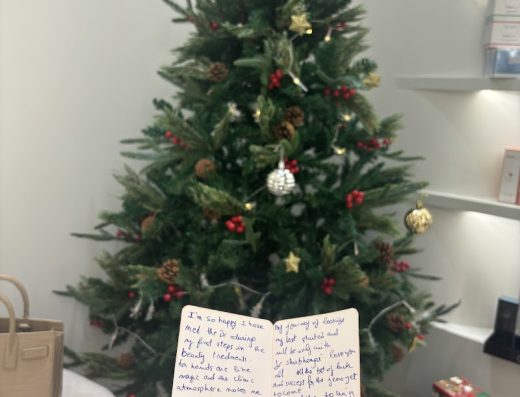 I'm so happy I have
met the Dr during
my first steps in the
beauty treatments
hands are like
magic and the clinic
atmosphere makes me
my journey of
just started and
will be only with
Dr
all the best of luck
and success for the years yet
to come